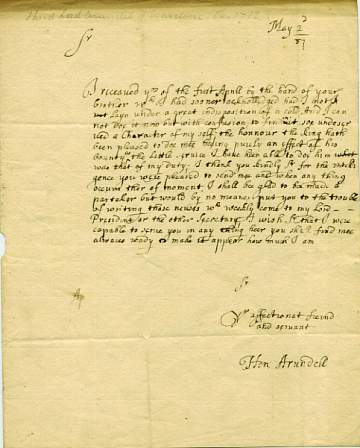 May 2d
87
Sr
I receaved yrs of the first Aprill by the hand of your
Brother wch I had sooner acknowledged had I not
layn under a great indisposition of a cold And I can
not doe it now but with confusion to find out soe undeser
ved a Character of my self the honnour the King hath
been pleased to doe mee being purely an effect of his
bounty, the little service I have been able to doe him
was that of my duty. I thank you kindly Sr for the intelli
gence you were pleased to send me and when any thing
occurrs ther of moment I shall be glad to be made a
partaker but would by no means putt you to the trouble
of writing those newses wch weekly come to my Lord
President or the other Secretary. I wish Sr that I were
capable to serve you in any thing heer you shall find mee
allwaies ready to make it appear how much I am
Sr
Yr affectionat freind
and servant
Hen Arundell